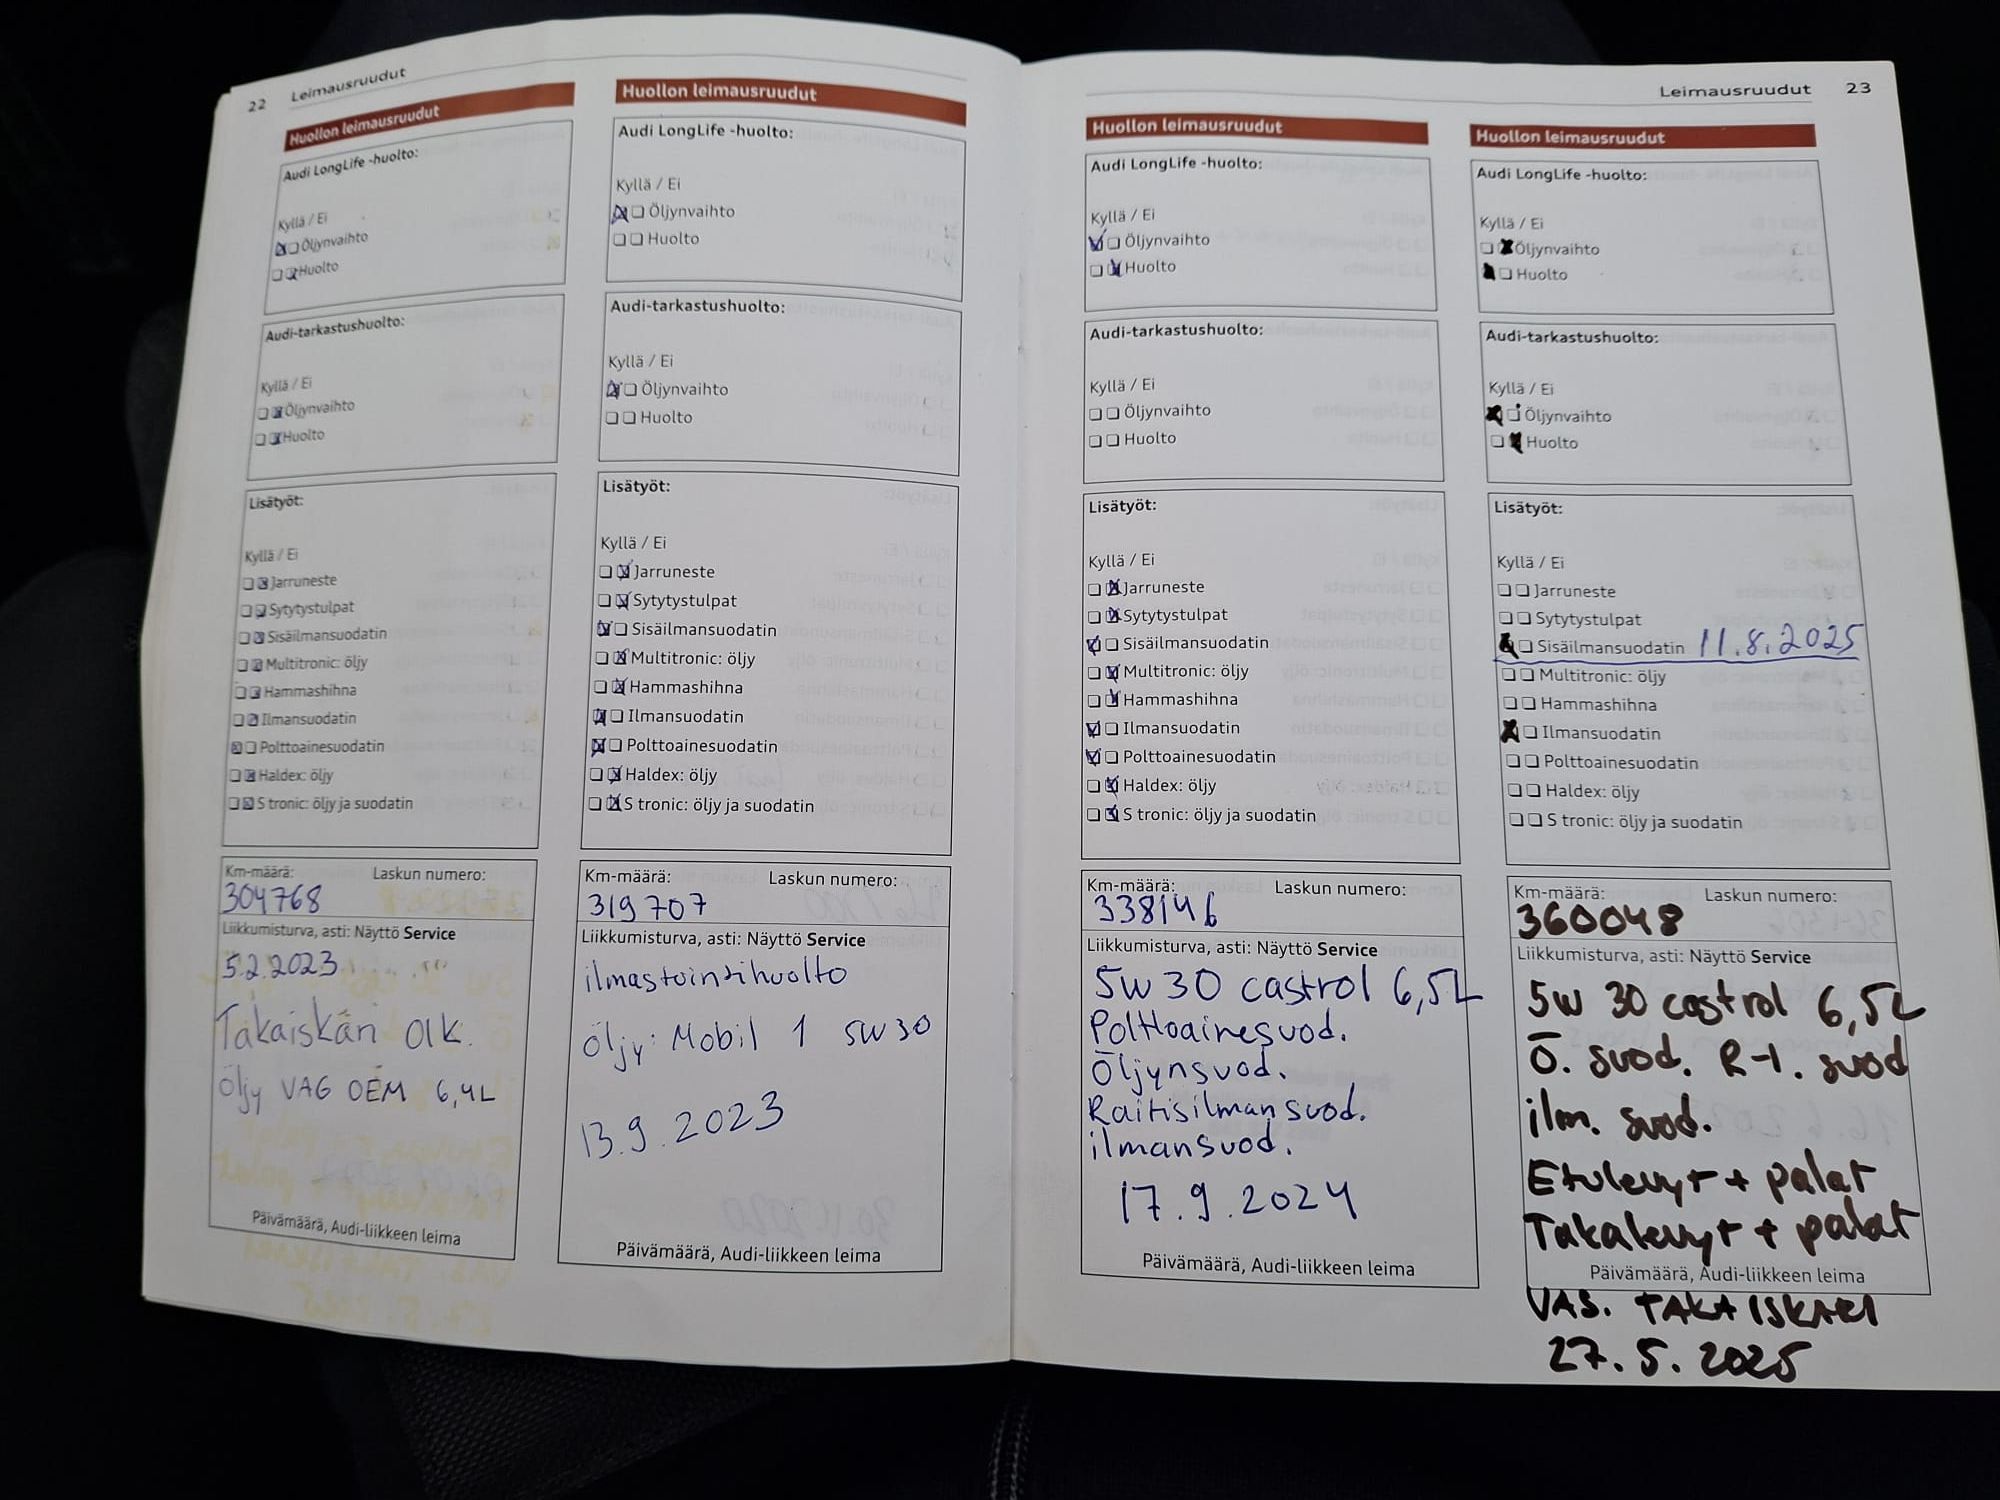 22 Leimausruudut
Huollon leimausruudut
Audi LongLife -huolto:
Kyllä / Ei
Öljynvaihto
Huolto
Audi-tarkastushuolto:
Kyllä / Ei
Öljynvaihto
Huolto
Lisätyöt:
Kyllä / Ei
Jarruneste
Sytytystulpat
Sisäilmansuodatin
Multitronic: öljy
Hammashihna
Ilmansuodatin
Polttoainesuodatin
Haldex: öljy
S tronic: öljy ja suodatin
Km-määrä: Laskun numero:
304768
Liikkumisturva, asti: Näyttö Service
5.2.2023
Takaiskän Olk.
Öljy VAG OEM 6,4L
Päivämäärä, Audi-liikkeen leima
Huollon leimausruudut
Audi LongLife -huolto:
Kyllä / Ei
Öljynvaihto
Huolto
Audi-tarkastushuolto:
Kyllä / Ei
Öljynvaihto
Huolto
Lisätyöt:
Kyllä / Ei
Jarruneste
Sytytystulpat
Sisäilmansuodatin
Multitronic: öljy
Hammashihna
Ilmansuodatin
Polttoainesuodatin
Haldex: öljy
S tronic: öljy ja suodatin
Km-määrä: Laskun numero:
319707
Liikkumisturva, asti: Näyttö Service
ilmastointihuolto
öljy: Mobil 1 5W30
13.9.2023
Päivämäärä, Audi-liikkeen leima
Leimausruudut 23
Huollon leimausruudut
Audi LongLife -huolto:
Kyllä / Ei
Öljynvaihto
Huolto
Audi-tarkastushuolto:
Kyllä / Ei
Öljynvaihto
Huolto
Lisätyöt:
Kyllä / Ei
Jarruneste
Sytytystulpat
Sisäilmansuodatin
Multitronic: öljy
Hammashihna
Ilmansuodatin
Polttoainesuodatin
Haldex: öljy
S tronic: öljy ja suodatin
Km-määrä: Laskun numero:
338146
Liikkumisturva, asti: Näyttö Service
5W30 castrol 6,5L
Polttoainesuod.
Öljynsuod.
Raitisilmansuod.
ilmansuod.
17.9.2024
Päivämäärä, Audi-liikkeen leima
Huollon leimausruudut
Audi LongLife -huolto:
Kyllä / Ei
Öljynvaihto
Huolto
Audi-tarkastushuolto:
Kyllä / Ei
Öljynvaihto
Huolto
Lisätyöt:
Kyllä / Ei
Jarruneste
Sytytystulpat
Sisäilmansuodatin 11.8.2025
Multitronic: öljy
Hammashihna
Ilmansuodatin
Polttoainesuodatin
Haldex: öljy
S tronic: öljy ja suodatin
Km-määrä: Laskun numero:
360048
Liikkumisturva, asti: Näyttö Service
5W 30 castrol 6,5L
Ö. suod. R-I. suod
ilm. suod.
Etulevyt + palat
Takalevyt + palat
Päivämäärä, Audi-liikkeen leima
VAS. TAKAISKARI
27.5.2025